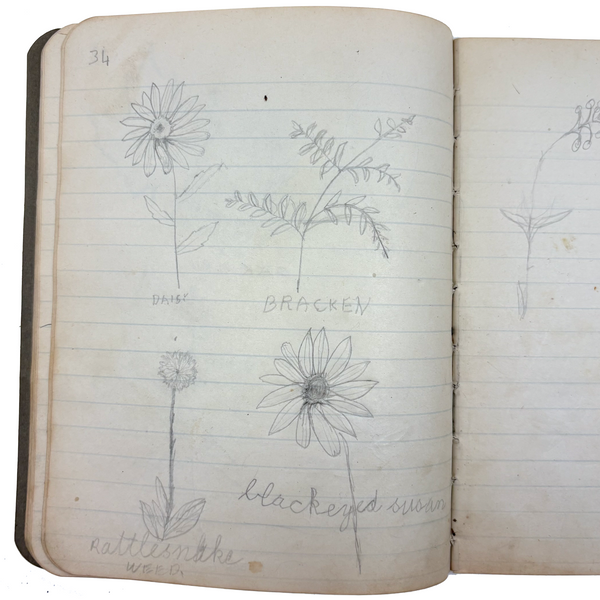 34
DAISY
BRACKEN
blackeyed susan
Rattlesnake
WEED.